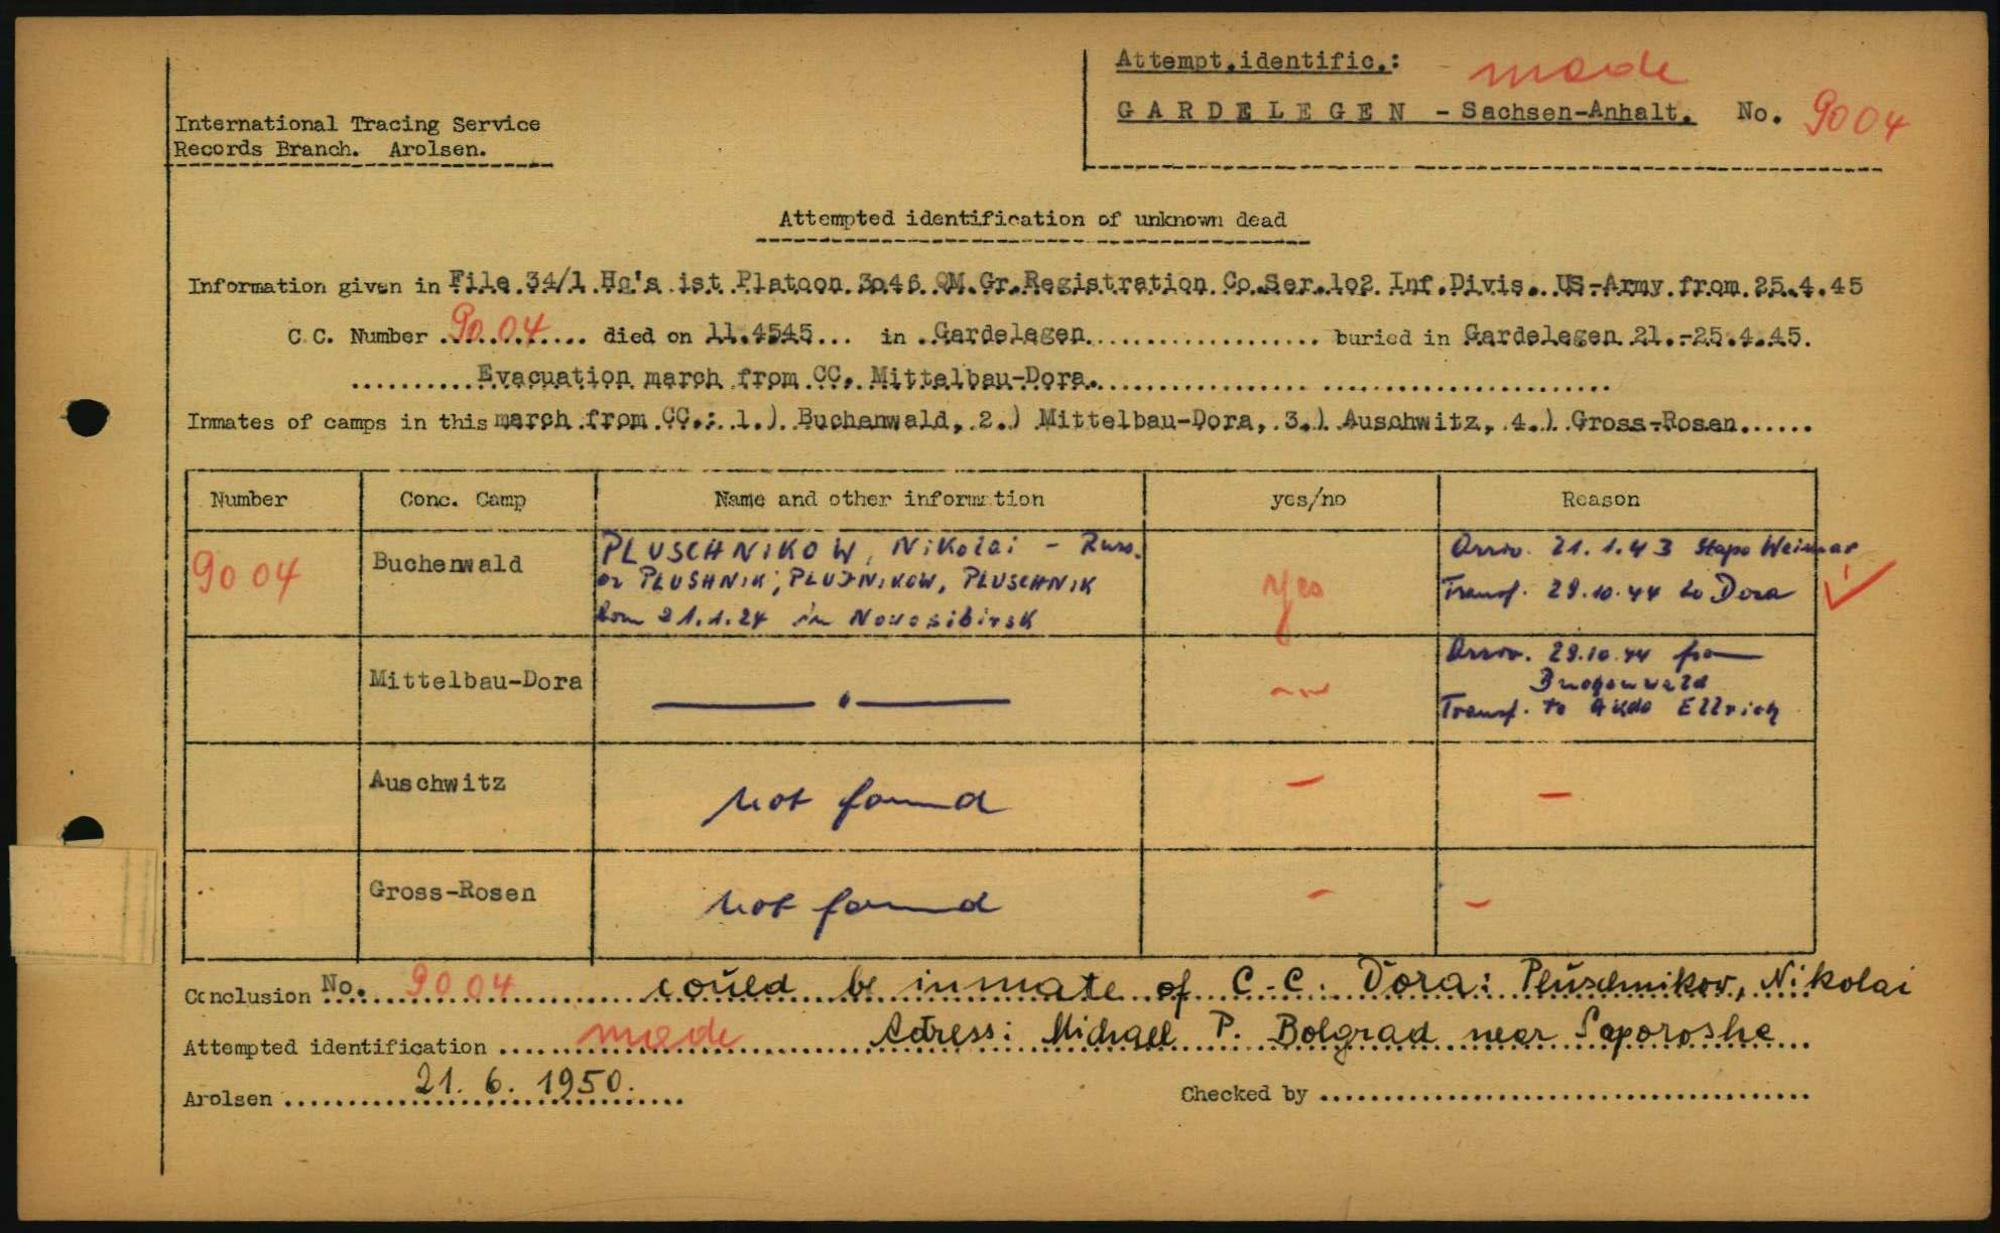 Attempt.identific.: made
GARDELEGEN - Sachsen-Anhalt. No. 9004
International Tracing Service
Records Branch. Arolsen.
Attempted identification of unknown dead
Information given in File 34/1 Hq's ist Platoon 3o46 QM.Gr.Registration Co.Ser.1o2 Inf.Divis. US-Army from 25.4.45
C.C. Number 9004 died on 11.4545... in Gardelegen buried in Gardelegen 21.-25.4.45.
Evacuation march from CC. Mittelbau-Dora.
Inmates of camps in this march from CC.: 1.) Buchenwald, 2.) Mittelbau-Dora, 3.) Auschwitz, 4.) Gross-Rosen
Number Conc. Camp Name and other information yes/no Reason
9004 Buchenwald PLUSCHNIKOW, Nikolai - Russ. yes Arriv. 21.1.43 Stapo Weimar
or PLUSHNIK, PLUJNIKOW, PLUSCHNIK Transf. 29.10.44 to Dora
born 21.1.24 in Novosibirsk
Mittelbau-Dora Arriv. 29.10.44 from
Buchenwald
Transf. to Ellrich
Auschwitz not found - -
Gross-Rosen not found - -
Conclusion No. 9004 could be inmate of C.C. Dora: Pluschnikov, Nikolai
Attempted identification made Adress: Michael P. Bolgrad near Saporoshe
Arolsen 21. 6. 1950. Checked by